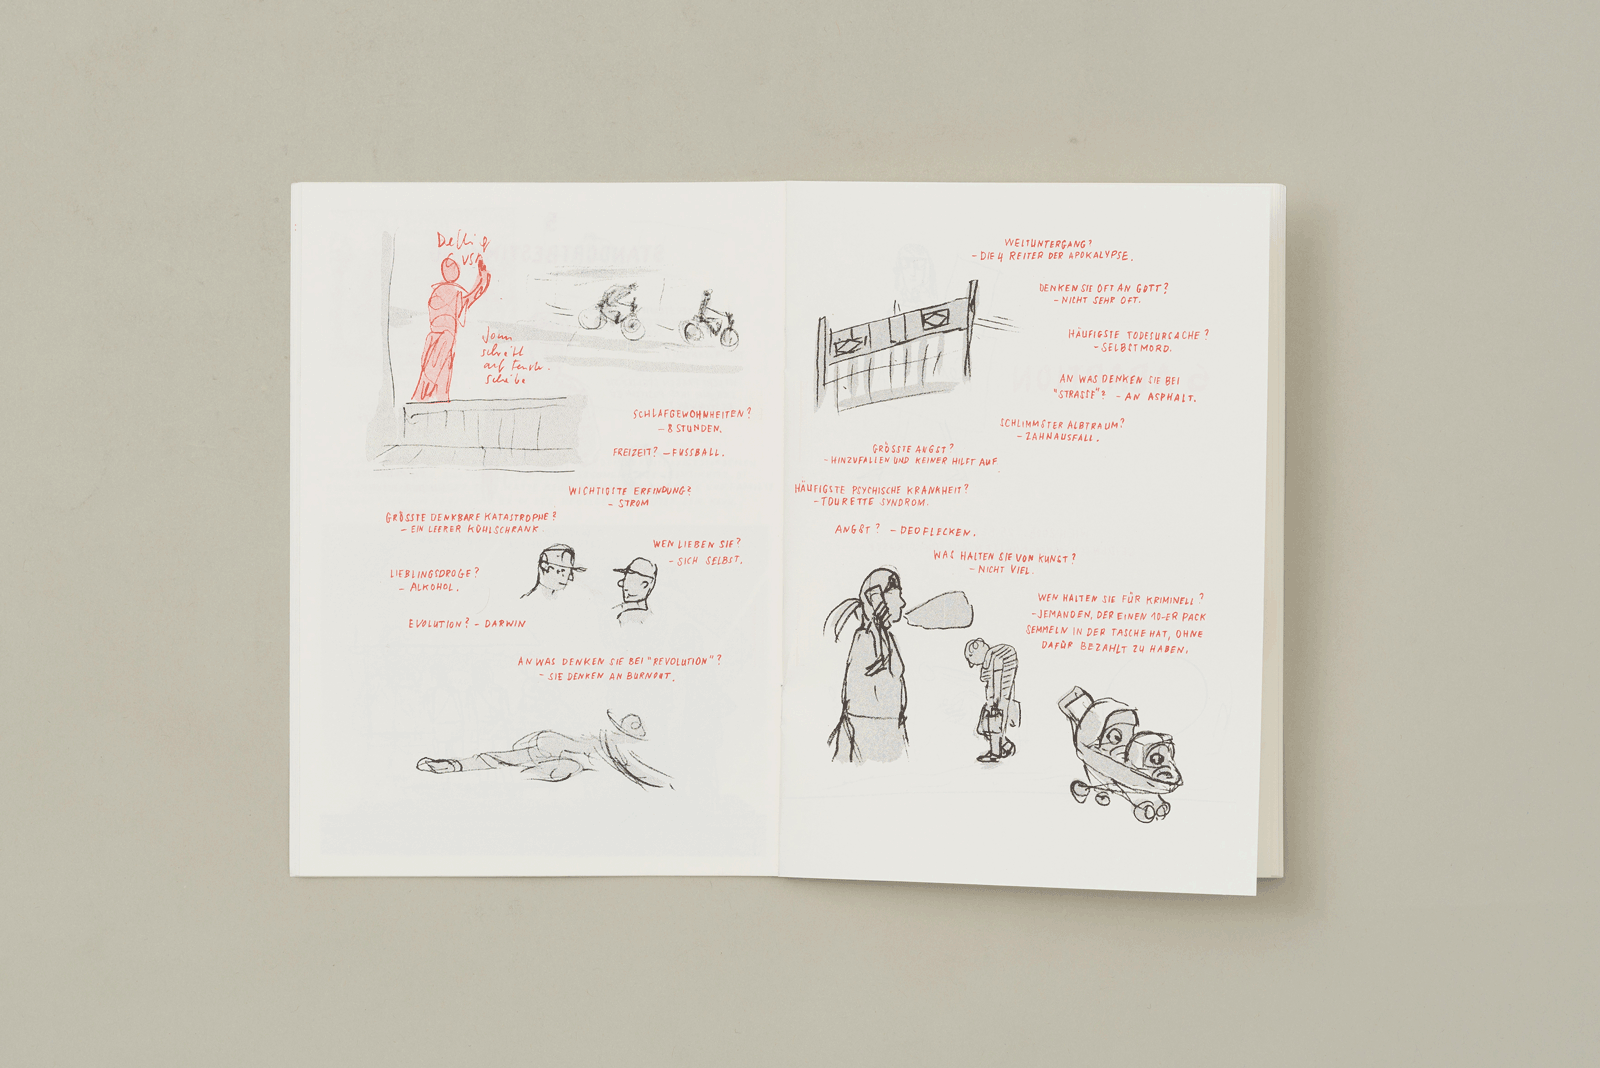 VS
auf
SCHLAFGEWOHNHEITEN?
– 8 STUNDEN.
FREIZEIT? – FUSSBALL.
WICHTIGSTE ERFINDUNG?
– STROM
GRÖSSTE DENKBARE KATASTROPHE?
– EIN LEERER KÜHLSCHRANK.
WEN LIEBEN SIE?
– SICH SELBST.
LIEBLINGSDROGE?
– ALKOHOL.
EVOLUTION? – DARWIN
AN WAS DENKEN SIE BEI "REVOLUTION"?
– SIE DENKEN AN BURNOUT.
WELTUNTERGANG?
– DIE 4 REITER DER APOKALYPSE.
DENKEN SIE OFT AN GOTT?
– NICHT SEHR OFT.
HÄUFIGSTE TODESURSACHE?
– SELBSTMORD.
AN WAS DENKEN SIE BEI
"STRASSE"? – AN ASPHALT.
SCHLIMMSTER ALBTRAUM?
– ZAHNAUSFALL.
GRÖSSTE ANGST?
– HINZUFALLEN UND KEINER HILFT AUF.
HÄUFIGSTE PSYCHISCHE KRANKHEIT?
– TOURETTE SYNDROM.
ANGST? – DEOFLECKEN.
WAS HALTEN SIE VON KUNST?
– NICHT VIEL.
WEN HALTEN SIE FÜR KRIMINELL?
– JEMANDEN, DER EINEN 10-ER PACK
SEMMELN IN DER TASCHE HAT, OHNE
DAFÜR BEZAHLT ZU HABEN.